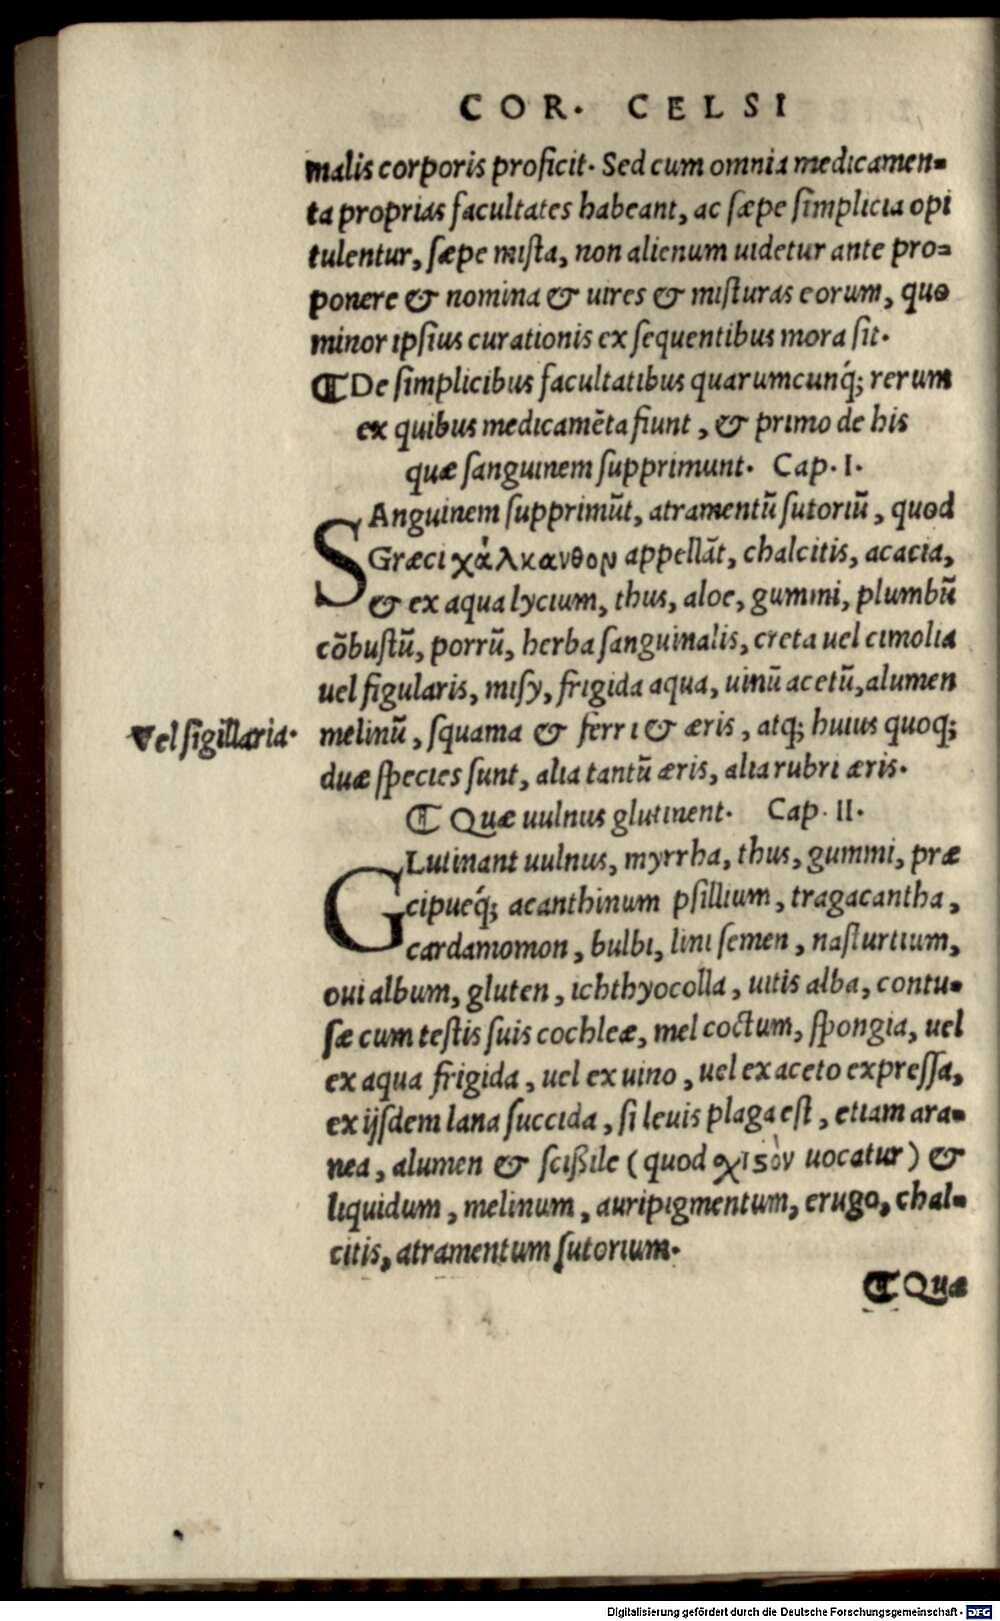 COR. CELSI
malis corporis proficit. Sed cum omnia medicamen-
ta proprias facultates habeant, ac sæpe simplicia opi
tulentur, sæpe mista, non alienum uidetur ante pro-
ponere & nomina & uires & misturas eorum, quo
minor ipsius curationis ex sequentibus mora sit.
¶De simplicibus facultatibus quarumcunq́; rerum
ex quibus medicamẽta fiunt, & primo de his
quæ sanguinem supprimunt. Cap. I.
SAnguinem supprimũt, atramentũ sutoriũ, quod
Græci χάλκανθον appellãt, chalcitis, acacia,
& ex aqua lycium, thus, aloe, gummi, plumbũ
cõbustũ, porrũ, herba sanguinalis, creta uel cimolia
uel figularis, misy, frigida aqua, uinũ acetũ, alumen
Vel sigillaria.
melinũ, squama & ferri & æris, atq; huius quoq;
duæ species sunt, alia tantũ æris, alia rubri æris.
¶ Quæ uulnus glutinent. Cap. II.
GLutinant uulnus, myrrha, thus, gummi, præ
cipueq́; acanthinum psillium, tragacantha,
cardamomon, bulbi, lini semen, nasturtium,
oui album, gluten, ichthyocolla, uitis alba, contu-
sæ cum testis suis cochleæ, mel coctum, spongia, uel
ex aqua frigida, uel ex uino, uel ex aceto expressa,
ex ijsdem lana succida, si leuis plaga est, etiam ara-
nea, alumen & scißile (quod χιϛὸν uocatur) &
liquidum, melinum, auripigmentum, erugo, chal-
citis, atramentum sutorium.
¶Quæ
Digitalisierung gefördert durch die Deutsche Forschungsgemeinschaft - DFG